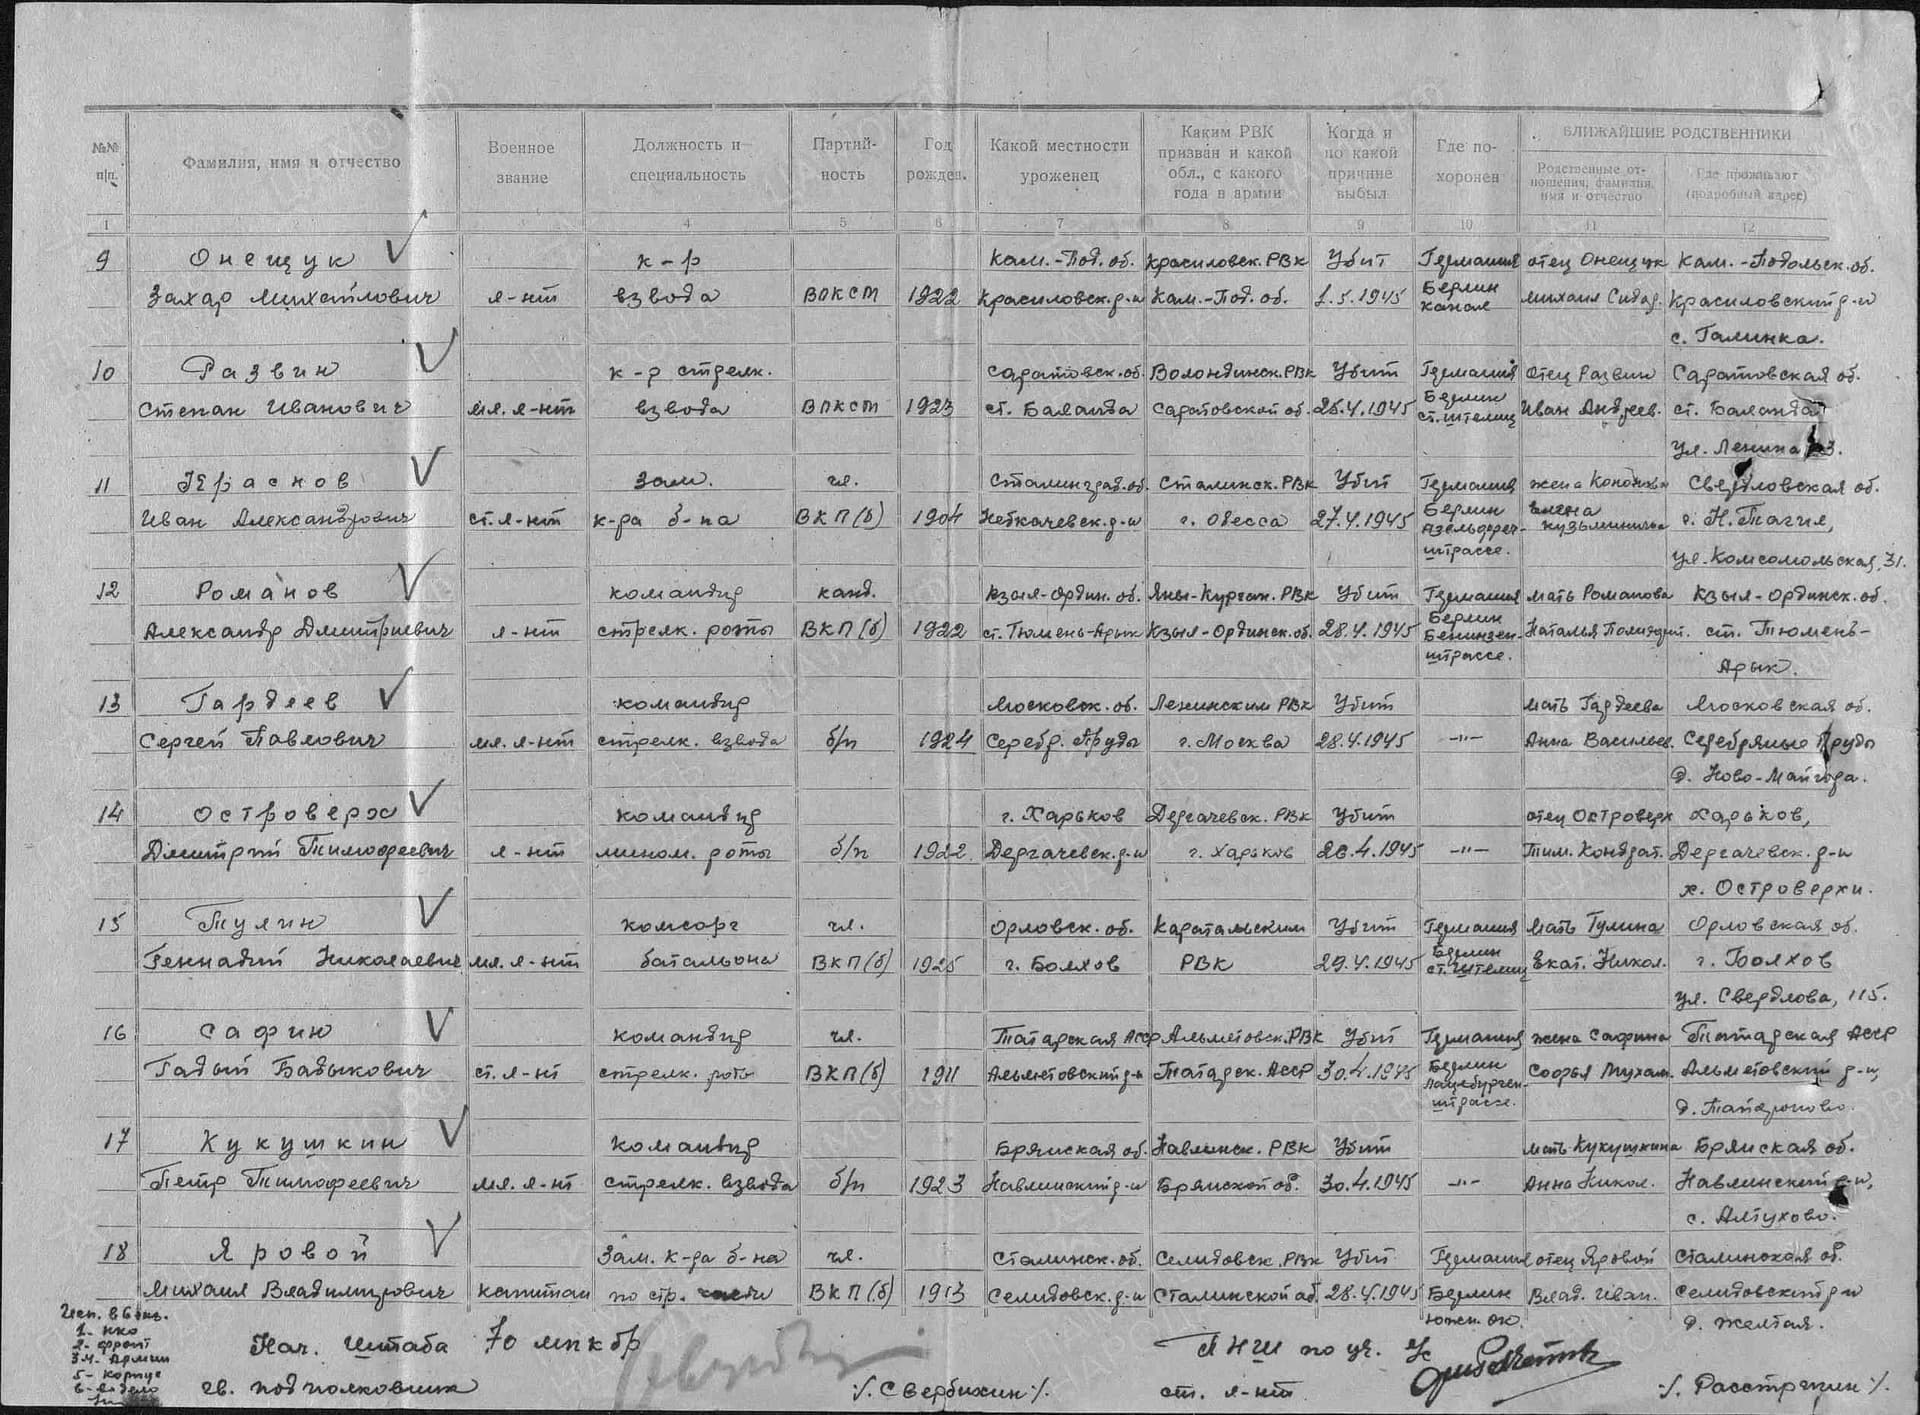 №№ п/п.
Фамилия, имя и отчество
Военное звание
Должность и специальность
Партийность
Год рожден.
Какой местности уроженец
Каким РВК призван и какой обл., с какого года в армии
Когда и по какой причине выбыл
Где похоронен
БЛИЖАЙШИЕ РОДСТВЕННИКИ
Родственные отношения, фамилия, имя и отчество
Где проживают (подробный адрес)
1 4 5 6 7 8 9 10 11 12
9 Онещук к-р Кам.-Под. об. Красиловск. РВК Убит Германия отец Онещук Кам.-Подольск. об.
Захар Михайлович л-нт взвода ВЛКСМ 1922 Красиловск. р-н Кам.-Под. об. 1.5.1945 Берлин канал Михаил Сидор. Красиловский р-н
с. Галинка.
10 Развин к-р стрелк. Саратовск. об. Воландинск. РВК Убит Германия отец Развин Саратовская об.
Степан Иванович мл. л-нт взвода ВЛКСМ 1923 ст. Баланда Саратовской об. 26.4.1945 Берлин ст. Штелиц Иван Андреев. ст. Баланда
ул. Ленина
11 Зам. чл. Сталинград. об. Сталинск. РВК Убит Германия жена Свердловская об.
Иван Александрович ст. л-нт к-ра б-на ВКП(б) 1904 г. Одесса 27.4.1945 Берлин Елена Кузьминична г. Н. Тагил,
штрассе. ул. Комсомольская, 31.
12 Романов командир канд. Кзыл-Ордин. об. Яны-Курган. РВК Убит Германия мать Романова Кзыл-Ординск. об.
Александр Дмитриевич л-нт стрелк. роты ВКП(б) 1922 ст. Тюмень-Арык Кзыл-Ординск. об. 28.4.1945 Берлин Наталья ст. Тюмень-
штрассе. Арык.
13 Гардеев командир Московск. об. Ленинским РВК Убит мать Гардеева Московская об.
Сергей Павлович мл. л-нт стрелк. взвода б/п 1924 Серебр. Пруды г. Москва 28.4.1945 -"- Анна Васильев. Серебряные Пруды
д. Ново-Майгора.
14 Островерх командир г. Харьков Дергачевск. РВК Убит отец Островерх Харьков,
Дмитрий Тимофеевич л-нт мином. роты б/п 1922 Дергачевск. р-н г. Харьков 26.4.1945 -"- Тим. Кондрат. Дергачевск. р-н
х. Островерхи.
15 Тулин комсорг чл. Орловск. об. Каратальским Убит Германия мать Тулина Орловская об.
Геннадий Николаевич мл. л-нт батальона ВКП(б) 1925 г. Болхов РВК 29.4.1945 Берлин ст. Штелиц Екат. Никол. г. Болхов
ул. Свердлова, 115.
16 Сафин командир чл. Татарская АССР Альметовск. РВК Убит Германия жена Сафина Татарская АССР
Гадый Бадыкович ст. л-нт стрелк. роты ВКП(б) 1911 Альметовский р-н Татарск. АССР 30.4.1945 Берлин Софья Мухам. Альметовский р-н,
штрассе.
17 Кукушкин командир Брянская об. Навлинск. РВК Убит мать Кукушкина Брянская об.
Петр Тимофеевич мл. л-нт стрелк. взвода б/п 1923 Навлинский р-н Брянской об. 30.4.1945 -"- Анна Никол. Навлинский р-н,
с. Алтухово.
18 Яровой Зам. к-ра б-на чл. Сталинск. об. Селидовск. РВК Убит Германия отец Яровой Сталинская об.
Михаил Владимирович капитан по стр. части ВКП(б) 1913 Селидовск. р-н Сталинской об. 28.4.1945 Берлин Влад. Иван. Селидовский р-н
южн. ок. д. Желтая.
Исп. в 6 экз.
1- НКО
2- фронт
3-4- Армии
5- корпус
6- в дело
Нач. штаба 70 мпкбр
гв. подполковник /. Свербихин /.
ПНШ по уч. 
ст. л-нт /. Расстригин /.